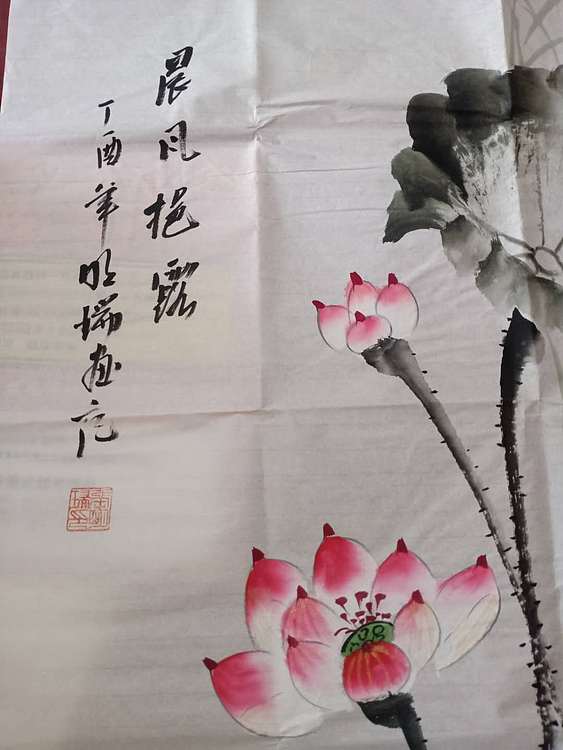 晨风挹露
丁酉年明瑞画